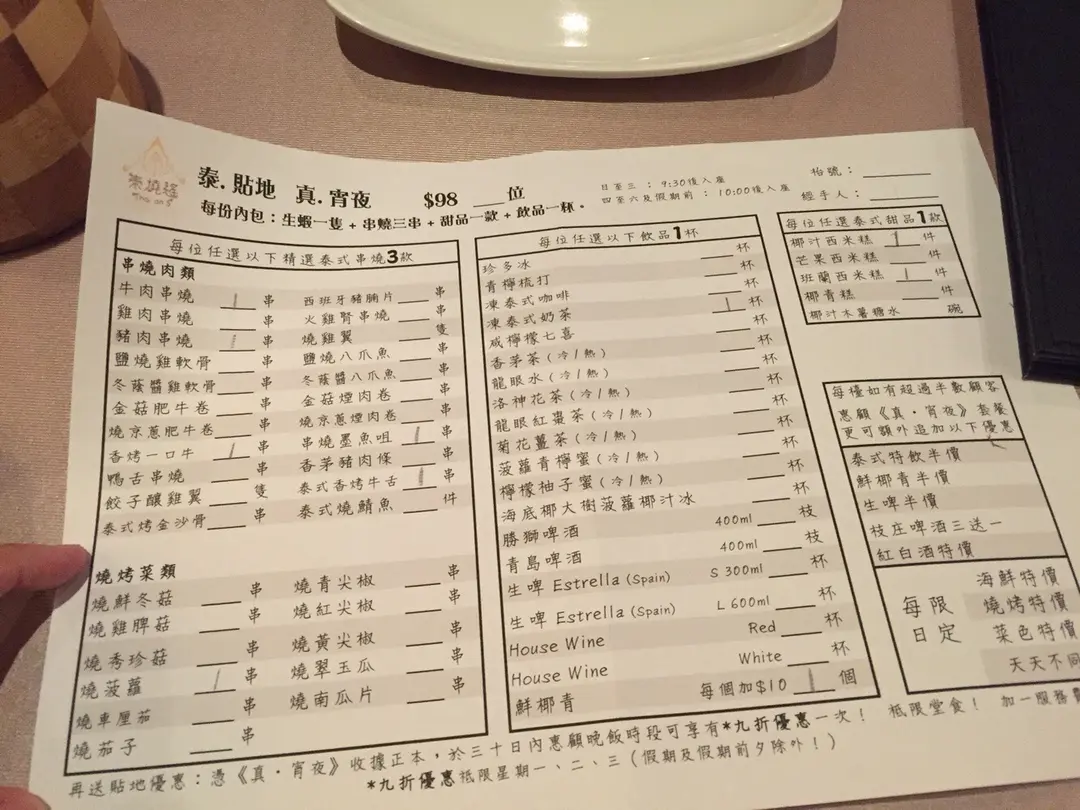 泰燒探
泰.貼地 真.宵夜 $98 ___位
日至三：9:30後入座
四至六及假期前：10:00後入座
枱號：
經手人：
每份內包：生蝦一隻+串燒三串+甜品一款+飲品一杯。
每位任選以下精選泰式串燒3款
串燒肉類
牛肉串燒 串 西班牙豬腩片 串
雞肉串燒 串 火雞腎串燒 串
豬肉串燒 串 燒雞翼 隻
鹽燒雞軟骨 串 鹽燒八爪魚 串
冬蔭醬雞軟骨 串 冬蔭醬八爪魚 串
金菇肥牛卷 串 金菇煙肉卷 串
燒京蔥肥牛卷 串 燒京蔥煙肉卷 串
香烤一口牛 串 串燒墨魚咀 串
鴨舌串燒 串 香茅豬肉條 串
餃子釀雞翼 隻 泰式香烤牛舌 串
泰式烤金沙骨 串 泰式燒鯖魚 件
燒烤菜類
燒鮮冬菇 串 燒青尖椒 串
燒雞脾菇 串 燒紅尖椒 串
燒秀珍菇 串 燒黃尖椒 串
燒菠蘿 串 燒翠玉瓜 串
燒車厘茄 串 燒南瓜片 串
燒茄子 串
每位任選以下飲品1杯
珍多冰 杯
青檸梳打 杯
凍泰式咖啡 杯
凍泰式奶茶 杯
咸檸檬七喜 杯
香茅茶(冷/熱) 杯
龍眼水(冷/熱) 杯
洛神花茶(冷/熱) 杯
龍眼紅棗茶(冷/熱) 杯
菊花薑茶(冷/熱) 杯
菠蘿青檸蜜(冷/熱) 杯
檸檬柚子蜜(冷/熱) 杯
海底椰大樹菠蘿椰汁冰 杯
勝獅啤酒 400ml 枝
青島啤酒 400ml 枝
生啤 Estrella (Spain) S 300ml 杯
生啤 Estrella (Spain) L 600ml 杯
House Wine Red 杯
House Wine White 杯
鮮椰青 每個加$10 個
每位任選泰式甜品1款
椰汁西米糕 件
芒果西米糕 件
班蘭西米糕 件
椰青糕 件
椰汁木薯糖水 碗
每檯如有超過半數顧客
惠顧《真·宵夜》套餐
更可額外追加以下優惠
泰式特飲半價
鮮椰青半價
生啤半價
枝庄啤酒三送一
紅白酒特價
每日限定
海鮮特價
燒烤特價
菜色特價
天天不同
再送貼地優惠：憑《真·宵夜》收據正本，於三十日內惠顧晚飯時段可享有*九折優惠一次！ 祗限堂食！ 加一服務費
*九折優惠祗限星期一、二、三（假期及假期前夕除外！）